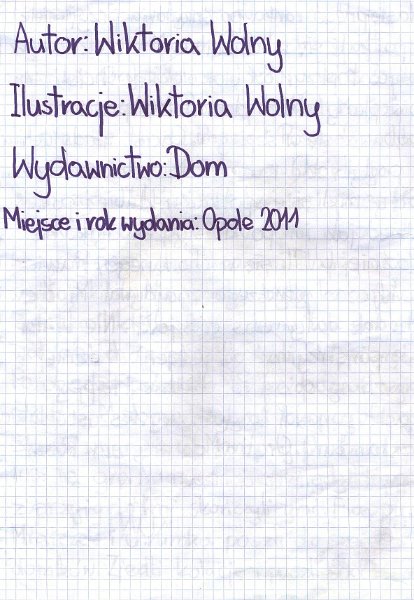 Autor: Wiktoria Wolny
Ilustracje: Wiktoria Wolny
Wydawnictwo: Dom
Miejsce i rok wydania: Opole 2011